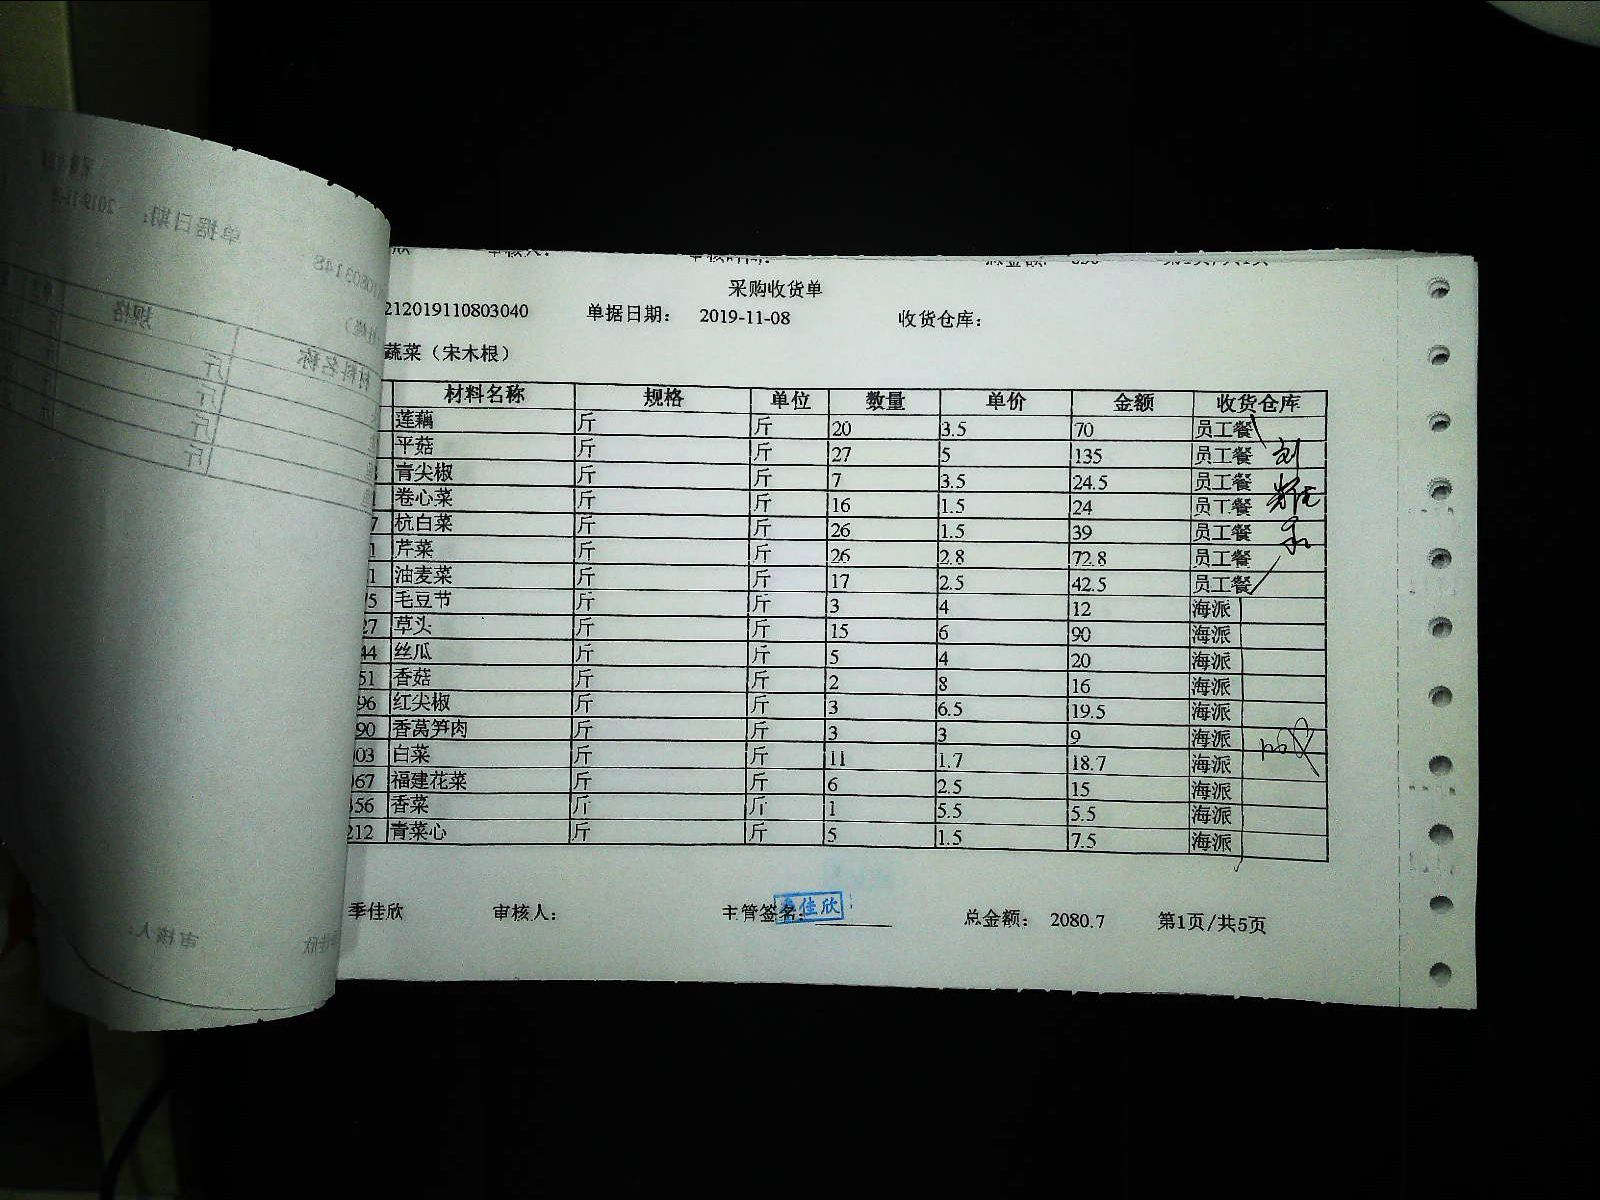 采购收货单
212019110803040 单据日期： 2019-11-08 收货仓库：
蔬菜（宋木根）
材料名称 规格 单位 数量 单价 金额 收货仓库
莲藕 斤 斤 20 3.5 70 员工餐
平菇 斤 斤 27 5 135 员工餐
青尖椒 斤 斤 7 3.5 24.5 员工餐
卷心菜 斤 斤 16 1.5 24 员工餐
7 杭白菜 斤 斤 26 1.5 39 员工餐
1 芹菜 斤 斤 26 2.8 72.8 员工餐
1 油麦菜 斤 斤 17 2.5 42.5 员工餐
75 毛豆节 斤 斤 3 4 12 海派
27 草头 斤 斤 15 6 90 海派
44 丝瓜 斤 斤 5 4 20 海派
51 香菇 斤 斤 2 8 16 海派
96 红尖椒 斤 斤 3 6.5 19.5 海派
90 香莴笋肉 斤 斤 3 3 9 海派
03 白菜 斤 斤 11 1.7 18.7 海派
067 福建花菜 斤 斤 6 2.5 15 海派
356 香菜 斤 斤 1 5.5 5.5 海派
212 青菜心 斤 斤 5 1.5 7.5 海派
季佳欣 审核人： 主管签名： 季佳欣 总金额： 2080.7 第1页/共5页